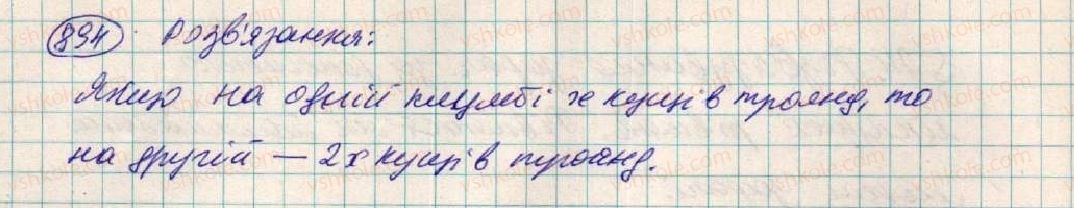 894 Розв'язання:
Якщо на одній клумбі x кущів троянд, то
на другій — 2x кущів троянд.